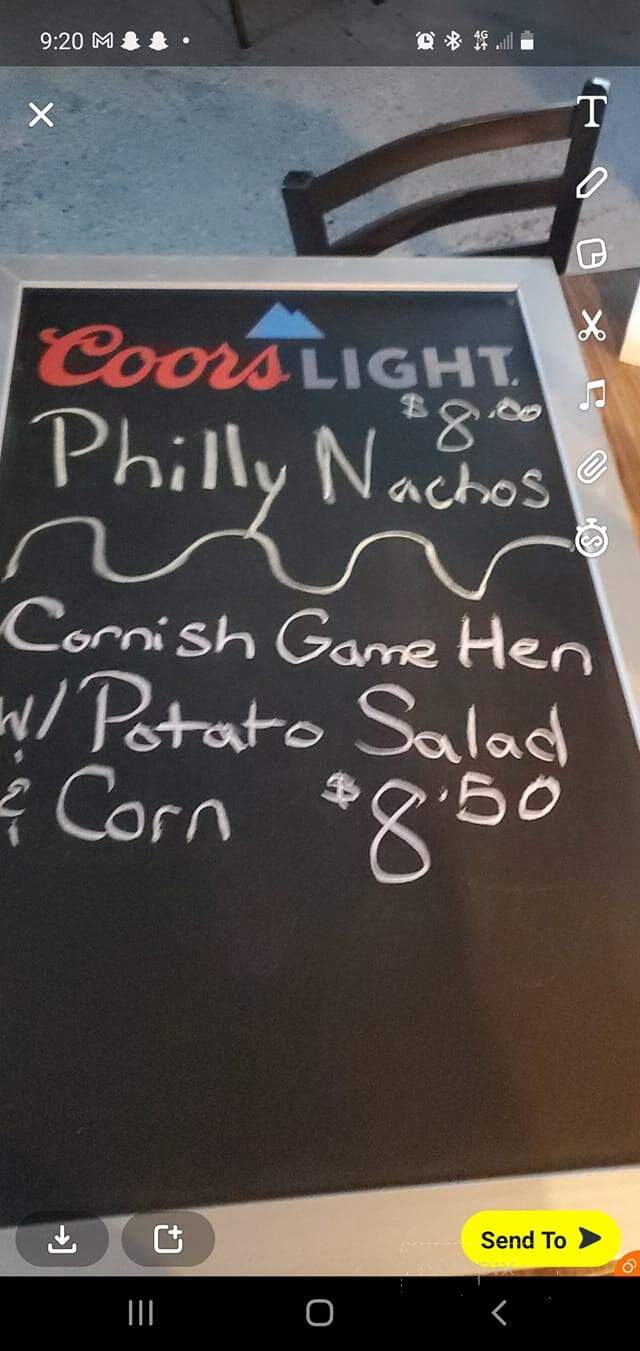 9:20
4G
T
Coors LIGHT
$8.00
Philly Nachos
Cornish Game Hen
W/ Potato Salad
& Corn $8.50
Send To